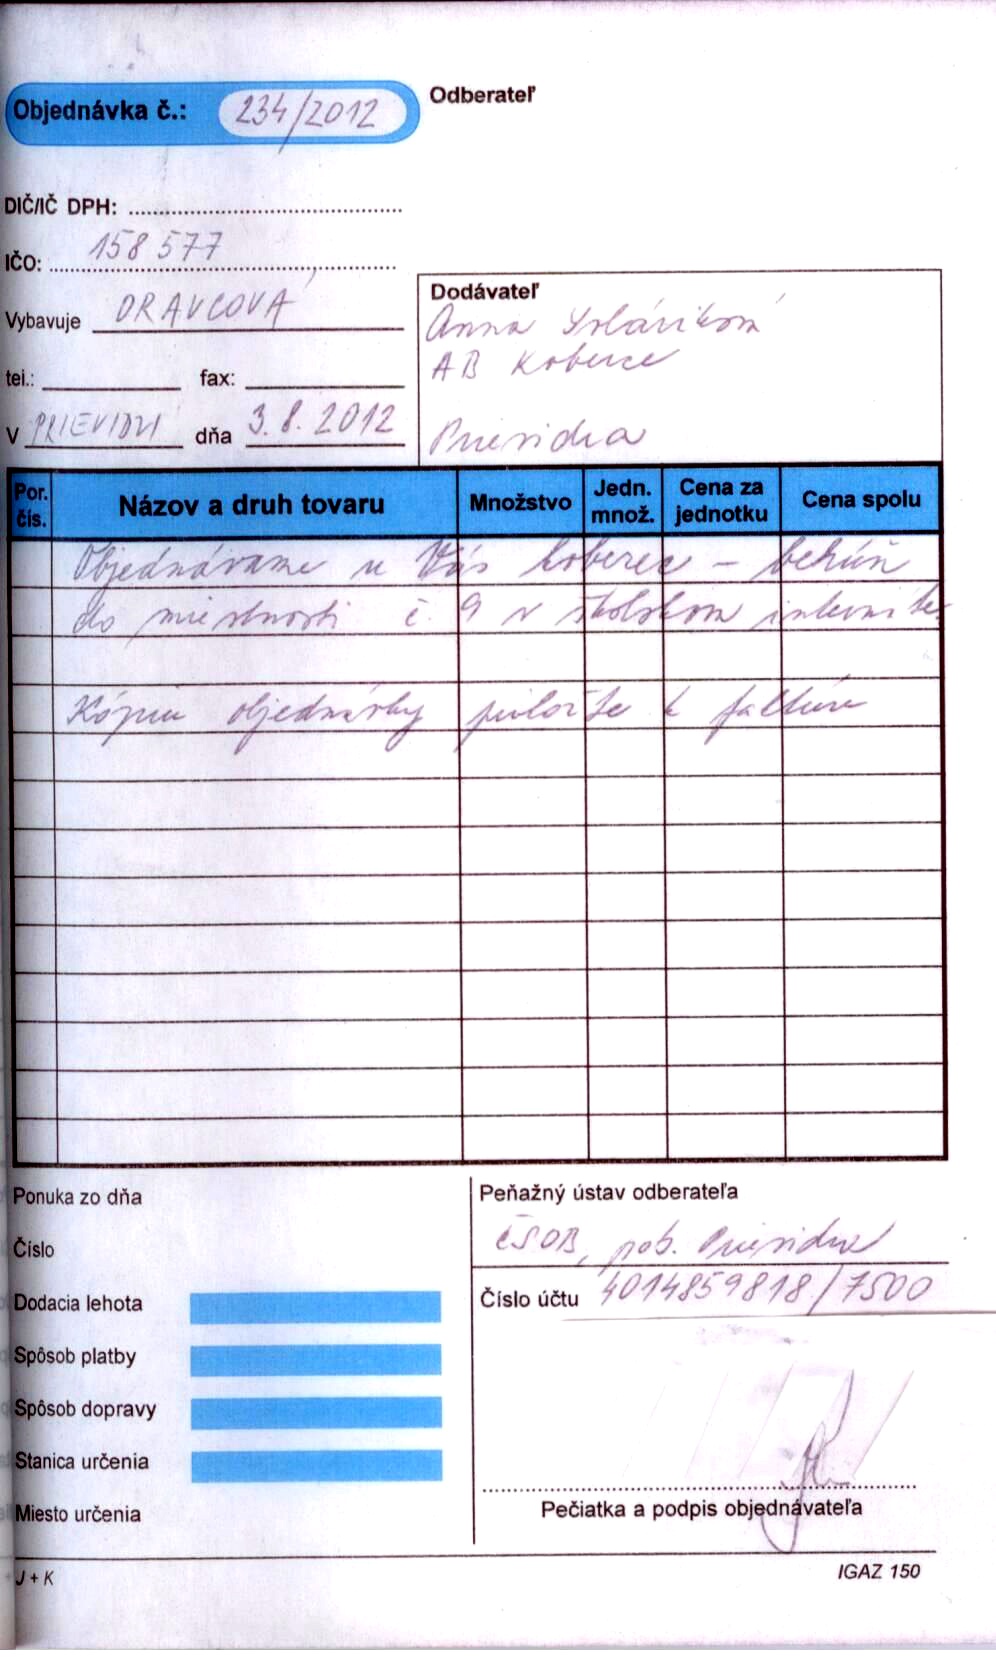 Objednávka č.: 234/2012
Odberateľ
DIČ/IČ DPH:
IČO: 158 577
Vybavuje ORAVCOVÁ
tel.: fax:
V PRIEVIDZI dňa 3.8.2012
Dodávateľ
Anna
AB Koberce
Prievidza
Por. čís. Názov a druh tovaru Množstvo Jedn. množ. Cena za jednotku Cena spolu
Objednávame u Vás koberec - behúň
do miestnosti č. 9 v školskom internáte
Kópiu objednávky priložte k faktúre
Ponuka zo dňa
Číslo
Dodacia lehota
Spôsob platby
Spôsob dopravy
Stanica určenia
Miesto určenia
Peňažný ústav odberateľa
ČSOB, pob. Prievidza
Číslo účtu 4014859818/7500
Pečiatka a podpis objednávateľa
J + K
IGAZ 150